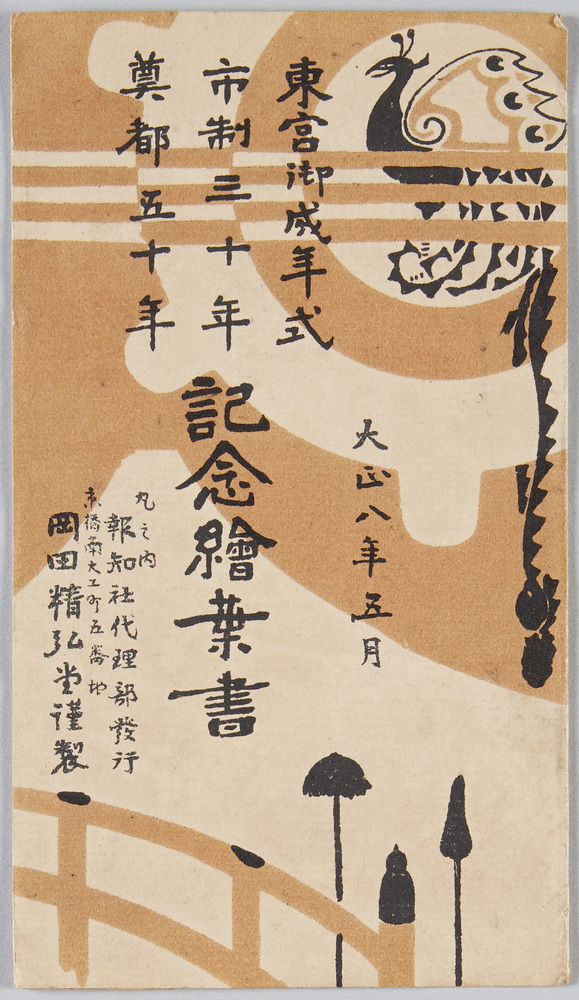 東宮御成年式
市制三十年
奠都五十年
記念繪葉書
大正八年五月
丸之内
報知社代理部發行
京橋南大工町五番地
岡田精弘堂謹製